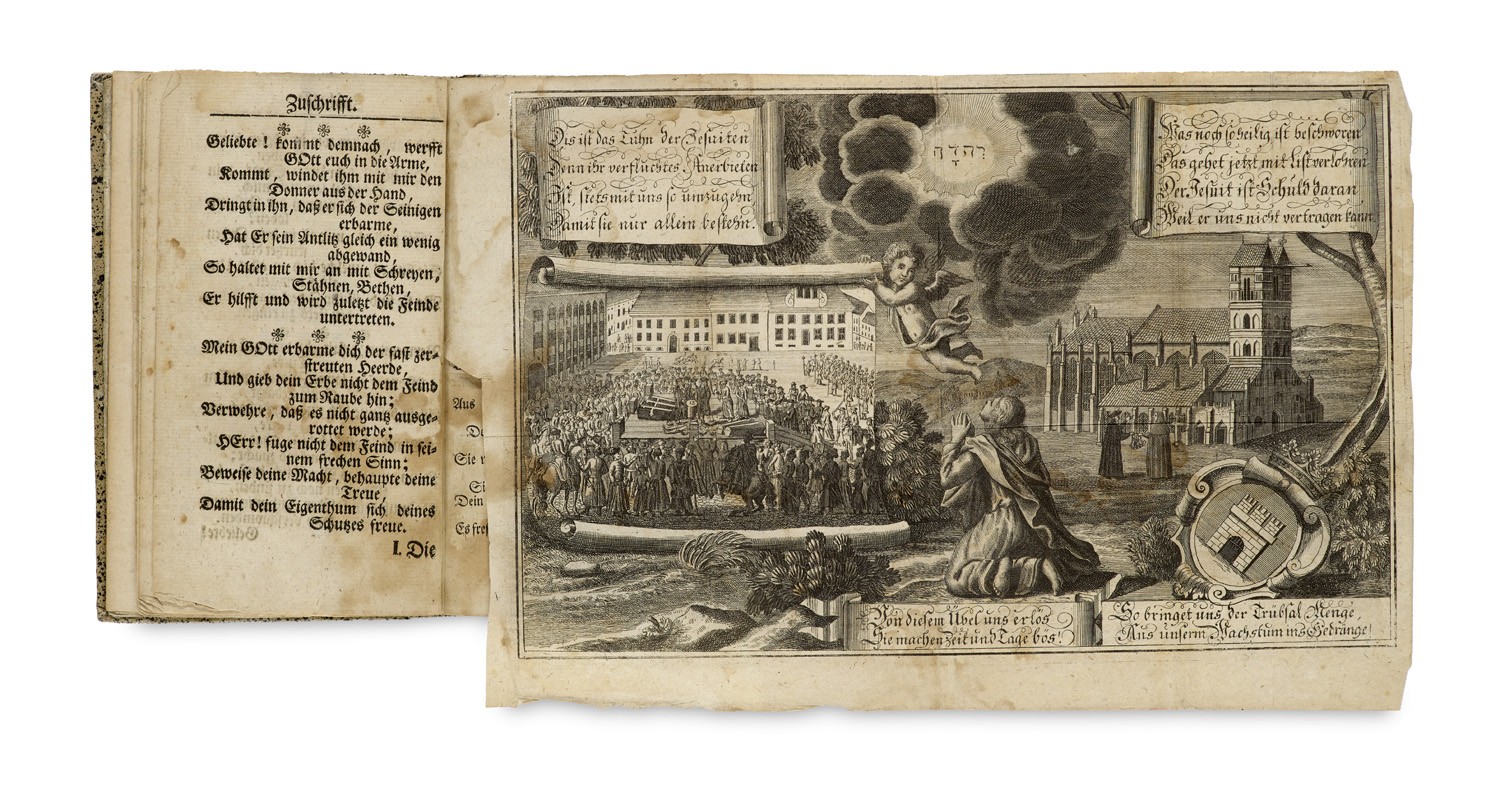 Zuschrifft.
Geliebte ! kommt demnach , werfft
GOtt euch in die Arme,
Kommt, windet ihm mit mir den
Donner aus der Hand,
Dringt in ihn, daß er sich der Seinigen
erbarme,
Hat Er sein Antlitz gleich ein wenig
abgewand,
So haltet mit mir an mit Schreyen,
Stähnen, Bethen,
Er hilfft und wird zuletzt die Feinde
untertreten.
Mein GOtt erbarme dich der fast zer-
streuten Heerde,
Und gieb dein Erbe nicht dem Feind
zum Raube hin;
Verwehre, daß es nicht gantz ausge-
rottet werde;
HErr! fuge nicht dem Feind in sei-
nem frechen Sinn;
Beweise deine Macht, behaupte deine
Treue,
Damit dein Eigenthum sich deines
Schutzes freue.
I. Die
Aus
Sie
Dein
Dis ist das Tuhn der Jesuiten
Denn ihr verfluchtes Anerbieten
Ist, stets mit uns so umzugehn
Damit sie nur allein bestehn.
Was noch so heilig ist beschworen
Das gehet jetzt mit List verlohren
Der Jesuit ist Schuld daran
Weil er uns nicht vertragen kann.
Von diesem Übel uns erlös
Sie machen Zeit und Tage bös!
So bringet uns der Trübsal Menge,
Aus unserm Wachstum ins Gedränge!